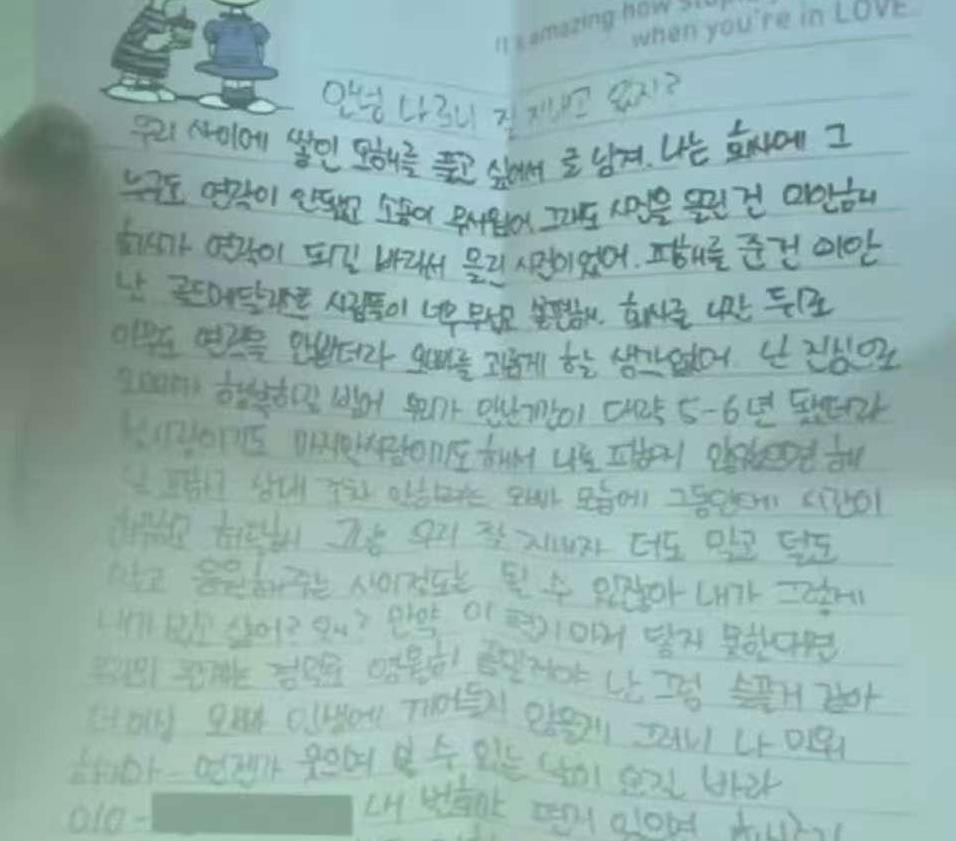 It's amazing how
when you're in LOVE
안녕 나 잘 지내고 있지?
우리 사이에 쌓인 오해를 풀고 싶어서 글 남겨. 나는 회사에 그
누구도 연락이 안됐고 소송이 무서웠어 그래도 사진을 올린 건 미안해
회사가 연락이 되길 바라서 올린 사진이었어. 피해를 준 건 미안
난 골드메달리스트 사람들이 너무 무섭고 슬펐해. 회사를 나간 뒤로
아무도 연락을 안받더라 오빠를 괴롭게 할 생각없어. 난 진심으로
오빠가 행복하길 빌어 우리가 만난기간이 대략 5-6년 됐더라
첫사랑이기도 마지막사랑이기도 해서 나를 피하지 않았으면 해
상대 조차 안하려는 오빠 모습에 그동안에 시간이
허무하고 허탈해 그냥 우리 잘 지내자 더도 말고 덜도
말고 응원해주는 사이정도는 될 수 있잖아 내가 그렇게
내가 밉고 싫어? 왜? 만약 이 편지마저 닿지 못한다면
우리의 관계는 정말로 영원히 끝일거야 난 그럼 슬플거 같아
더이상 오빠 인생에 끼어들지 않을게 그러니 나 미워
하지마 언젠가 웃으며 볼 수 있는 날이 오길 바라
010- 내 번호야 편지 읽으면